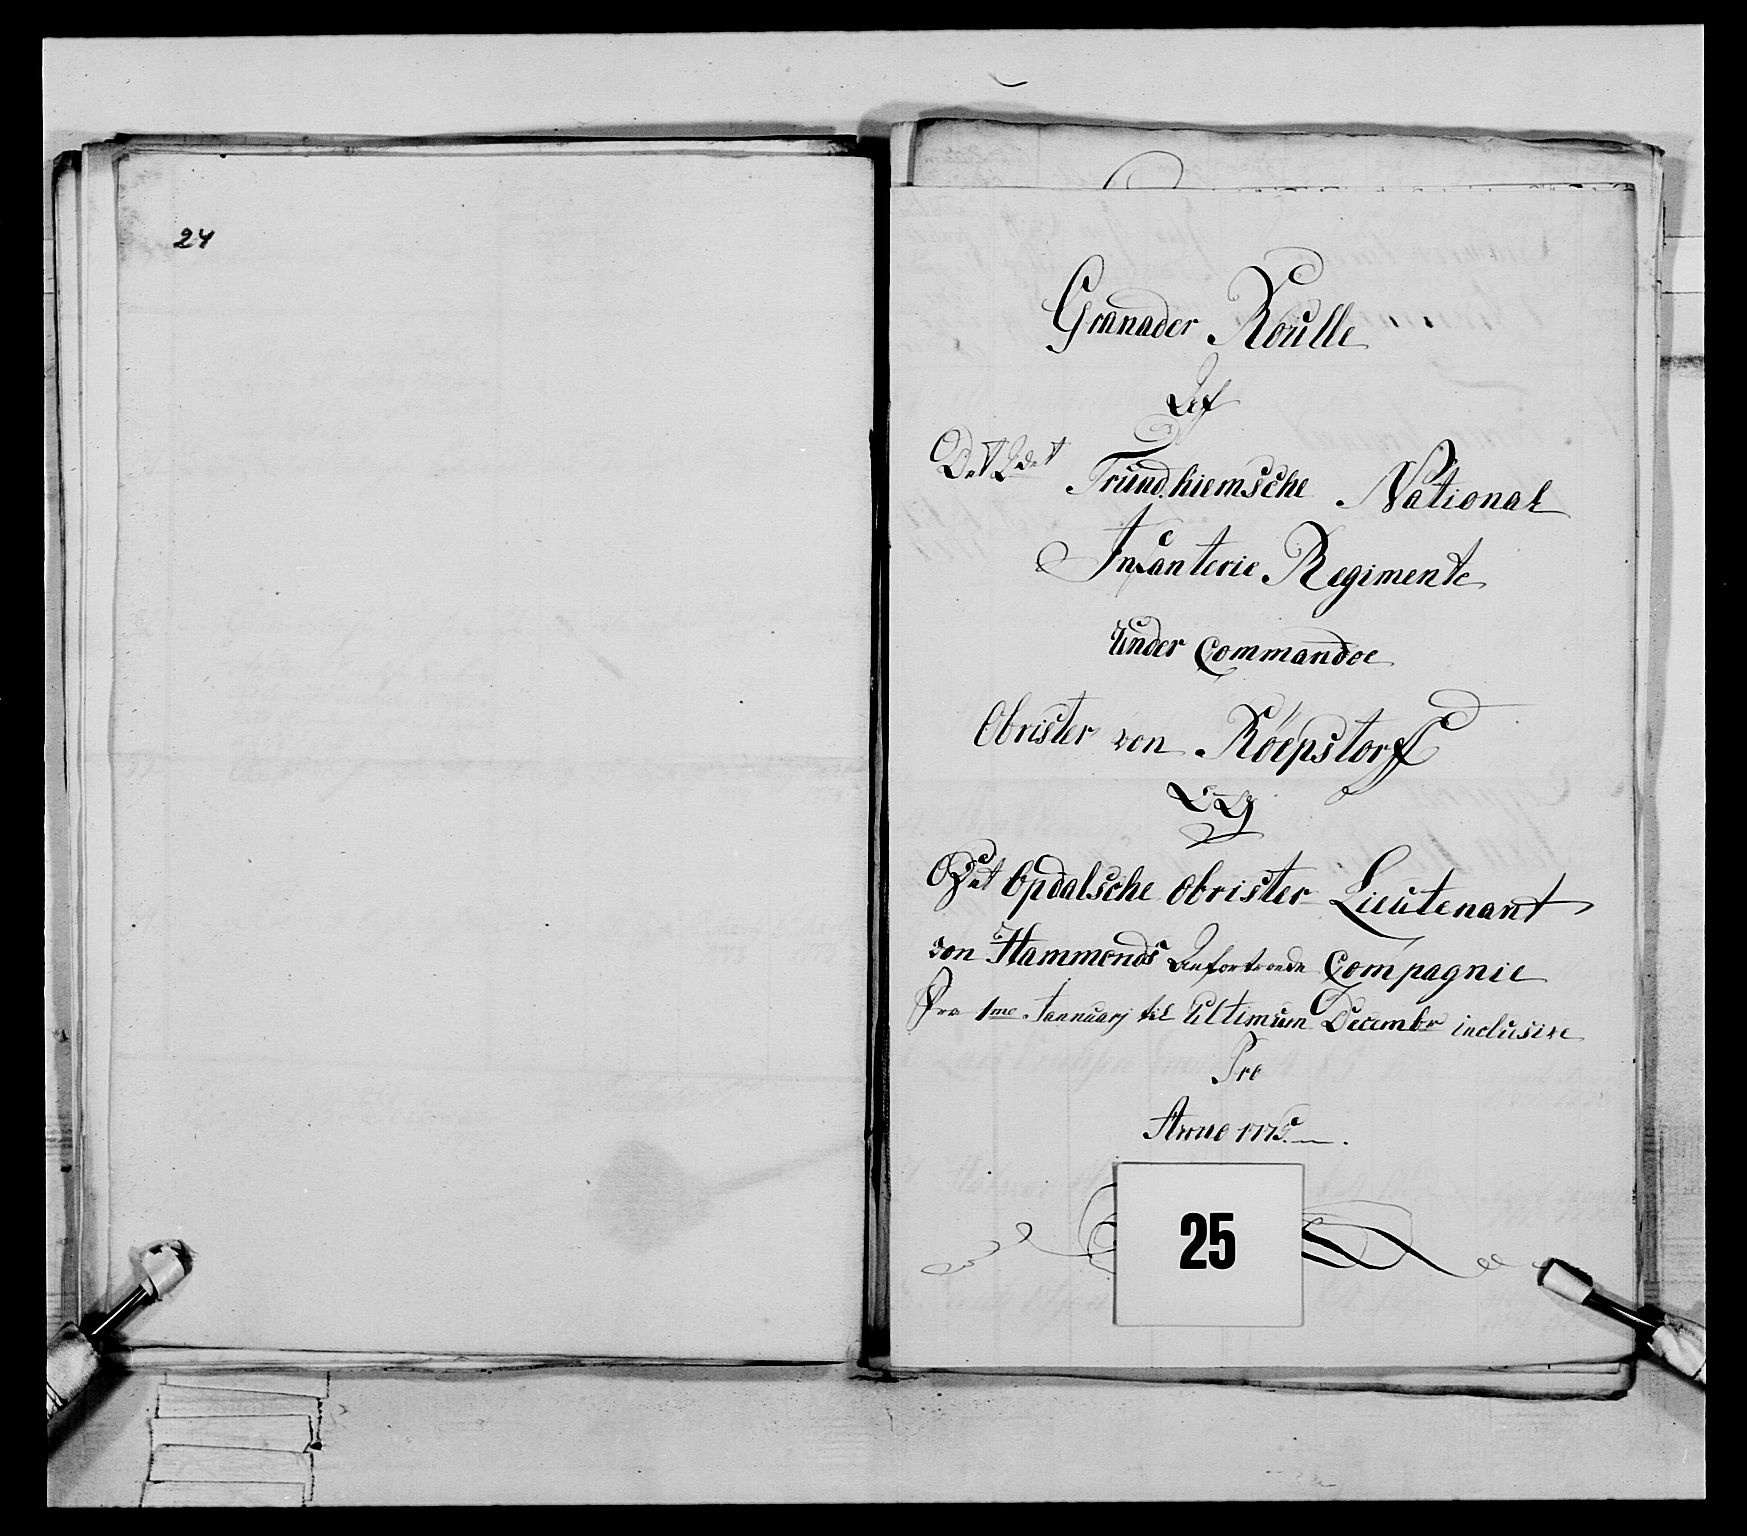 24
Granader Roulle
Af
Det 2det Trundhiemsche National
Infanterie Regimente
Under Commandoe
Obrister von Röepstorff
Og
Det Opdalsche Obrister Lieutenant
von Hammonds Anfortroede Compagnie
Fra 1me Jannuarj til Ultimum Decembr inclusive
Pro
Anno 1775.
25